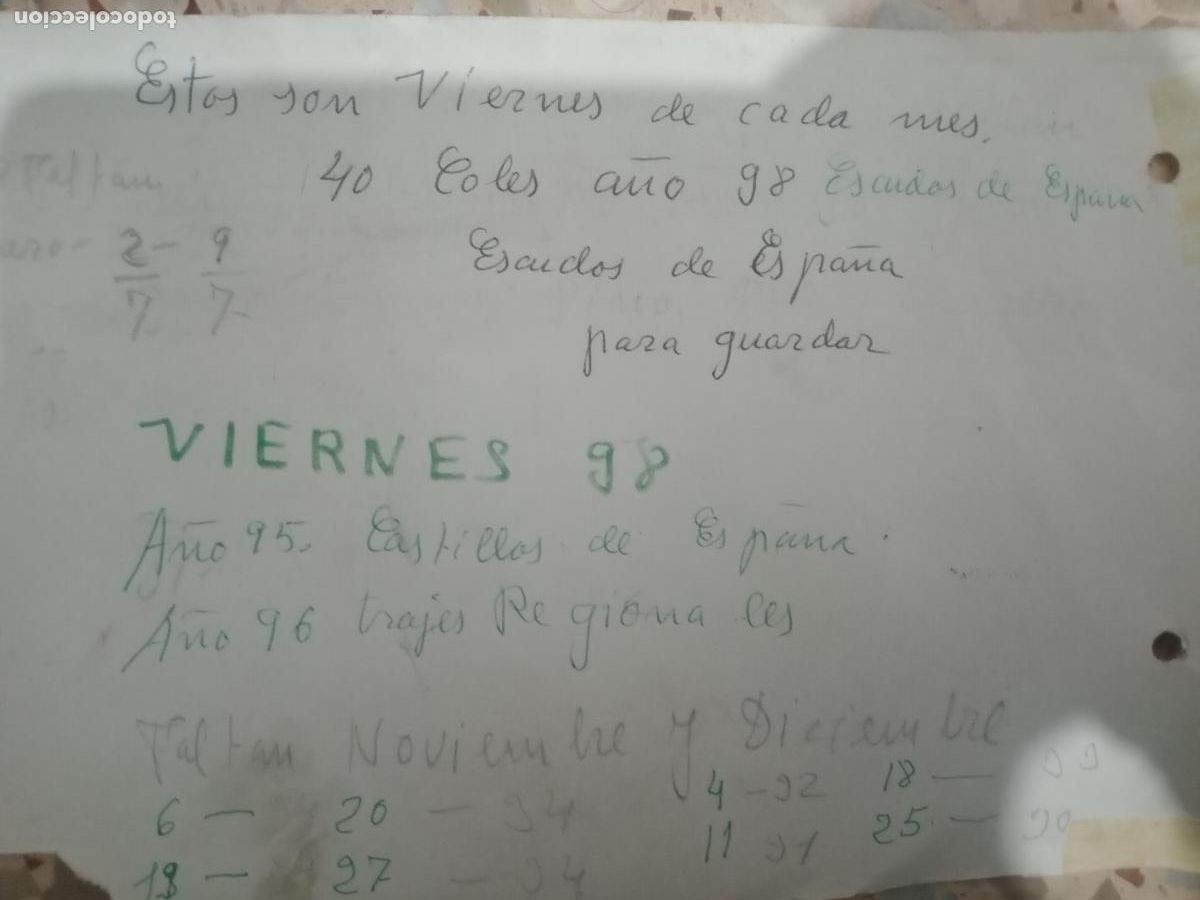 todocoleccion
Estos son Viernes de cada mes.
Faltan 40 Coles año 98 Escudos de España
2 - 9 Escudos de España
7 7
para guardar
VIERNES 98
Año 95. Castillos de España.
Año 96 trajes Regionales
Faltan Noviembre y Diciembre
4 - 92 18 —
6 — 20 — 94
11 91 25 —
13 — 27 — 94